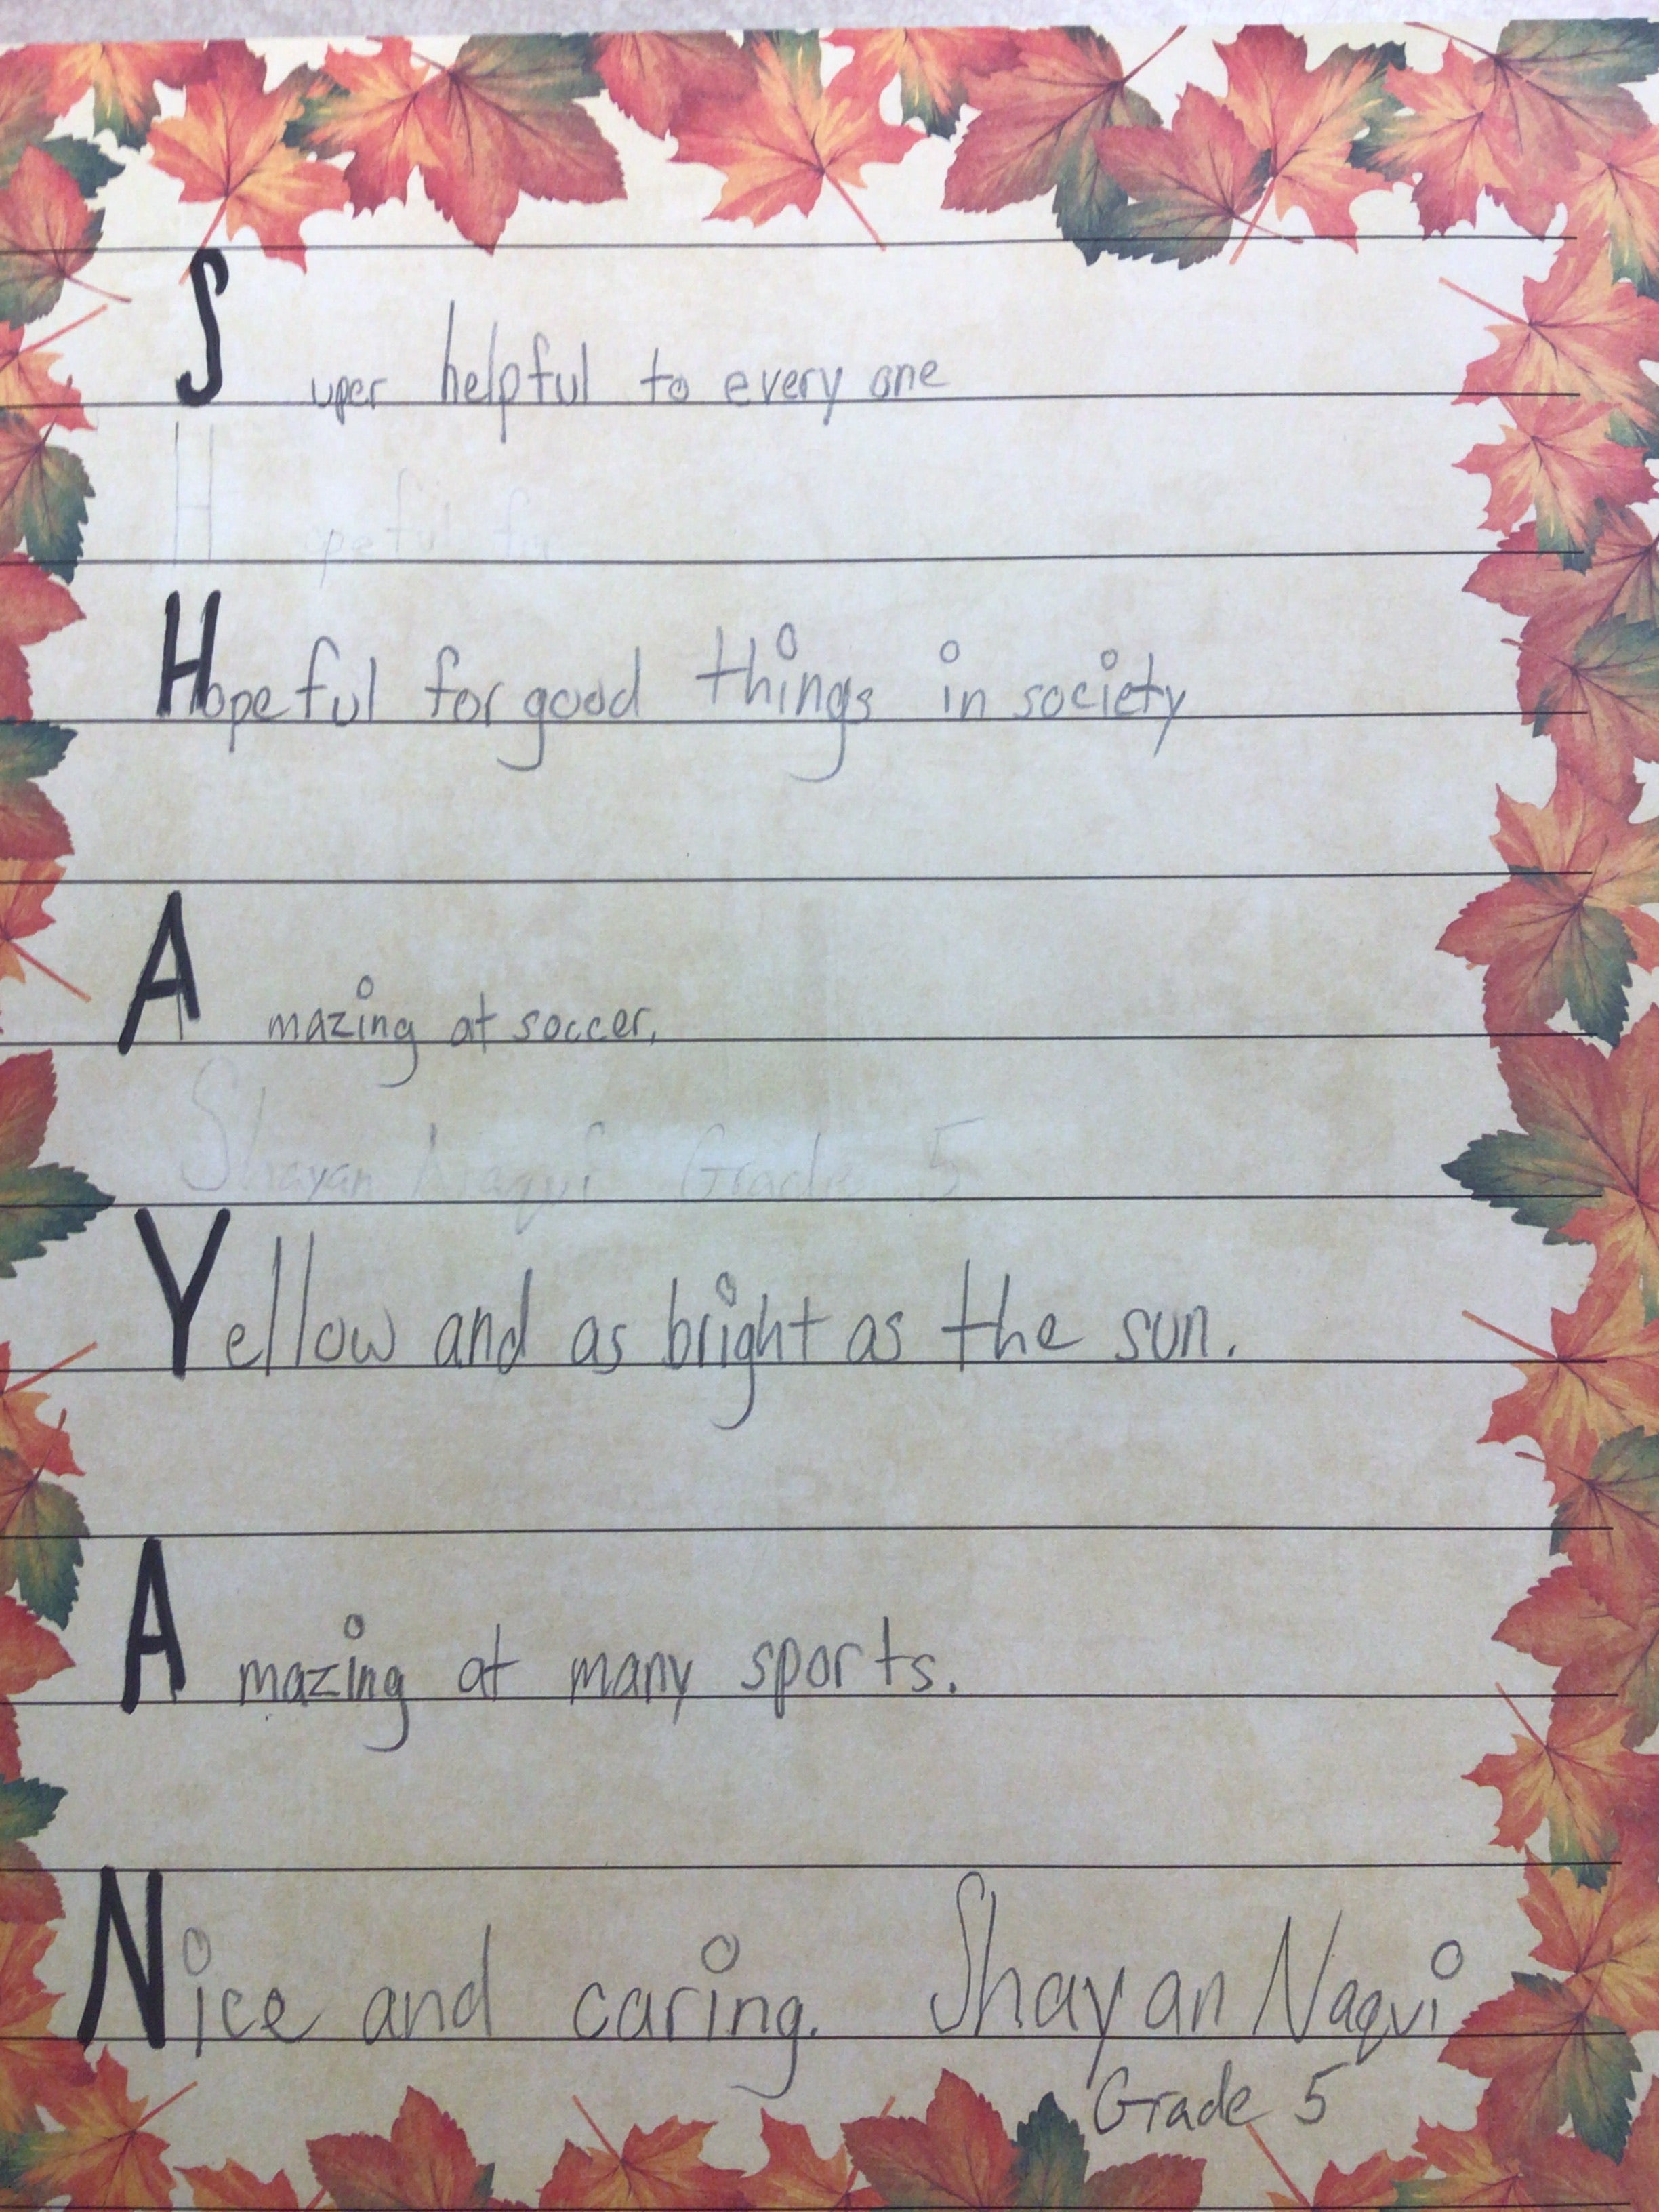 Super helpful to every one
H peful for
Hopeful for good things in society
Amazing at soccer.
Shayan Naqvi Grade 5
Yellow and as bright as the sun.
Amazing at many sports.
Nice and caring. Shayan Naqvi
Grade 5